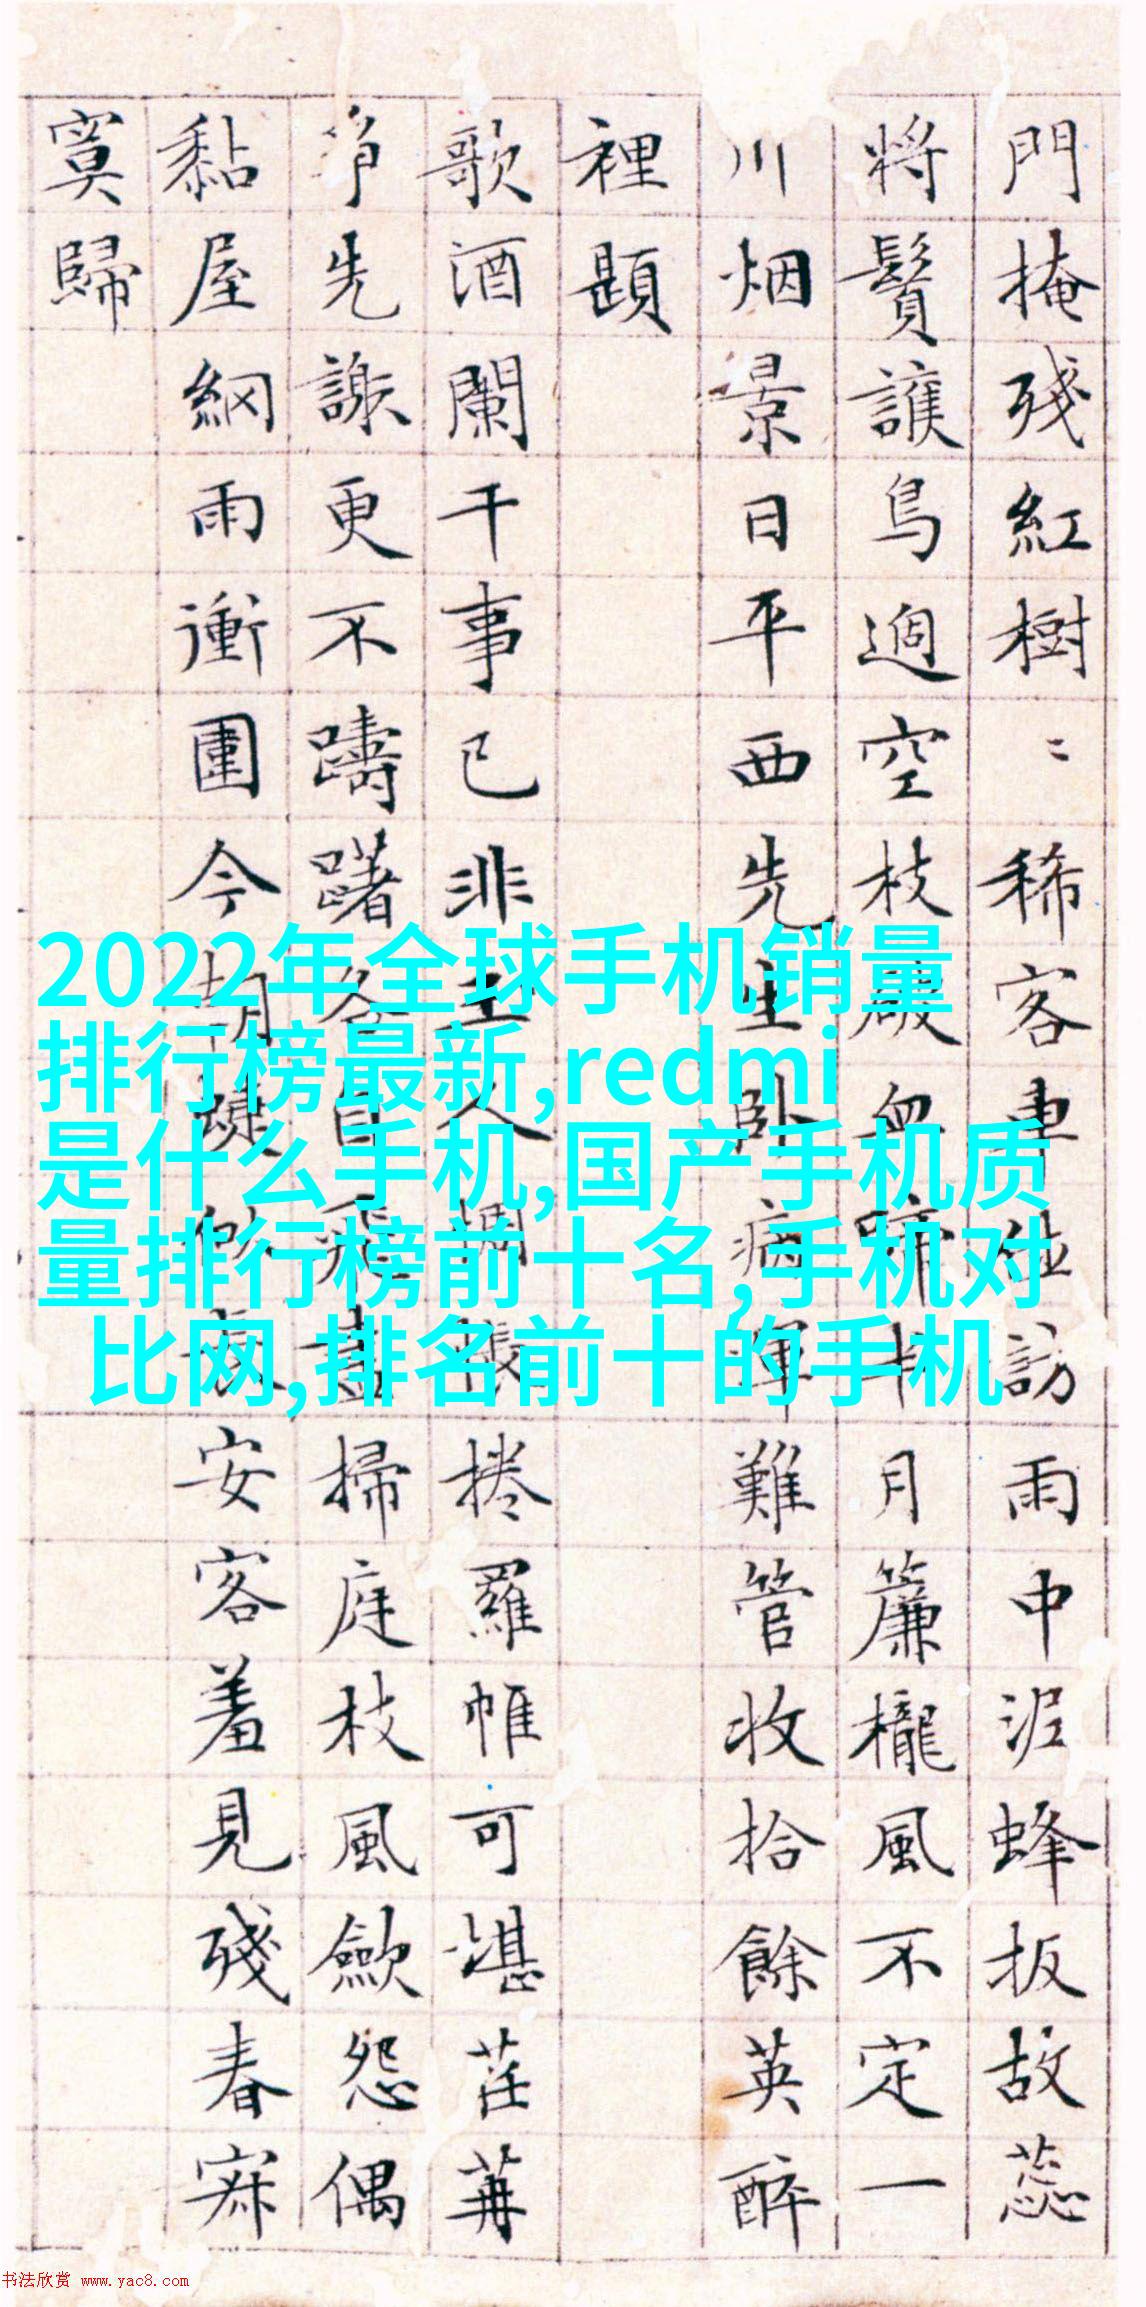 2022年全球手机销量
排行榜最新,redmi
是什么手机,国产手机质
量排行榜前十名,手机对
比网,排名前十的手机
門掩殘紅樹〻稀客車訪雨中泥蜂扳故蕊
將鬢護鳥過空枝破血啼月簾櫳風不定一
川烟景日平西先生卧病渾難管收拾餘英醉
裡題
歌酒闌干事已非主人惆悵捲羅帷可堪荏苒
爭先謝更不躊躇各自飛盡掃庭枝風歛怨偶
黏屋網雨衝圍今朝安客羞見殘春寂
寞歸
书法欣赏 www.yac8.com